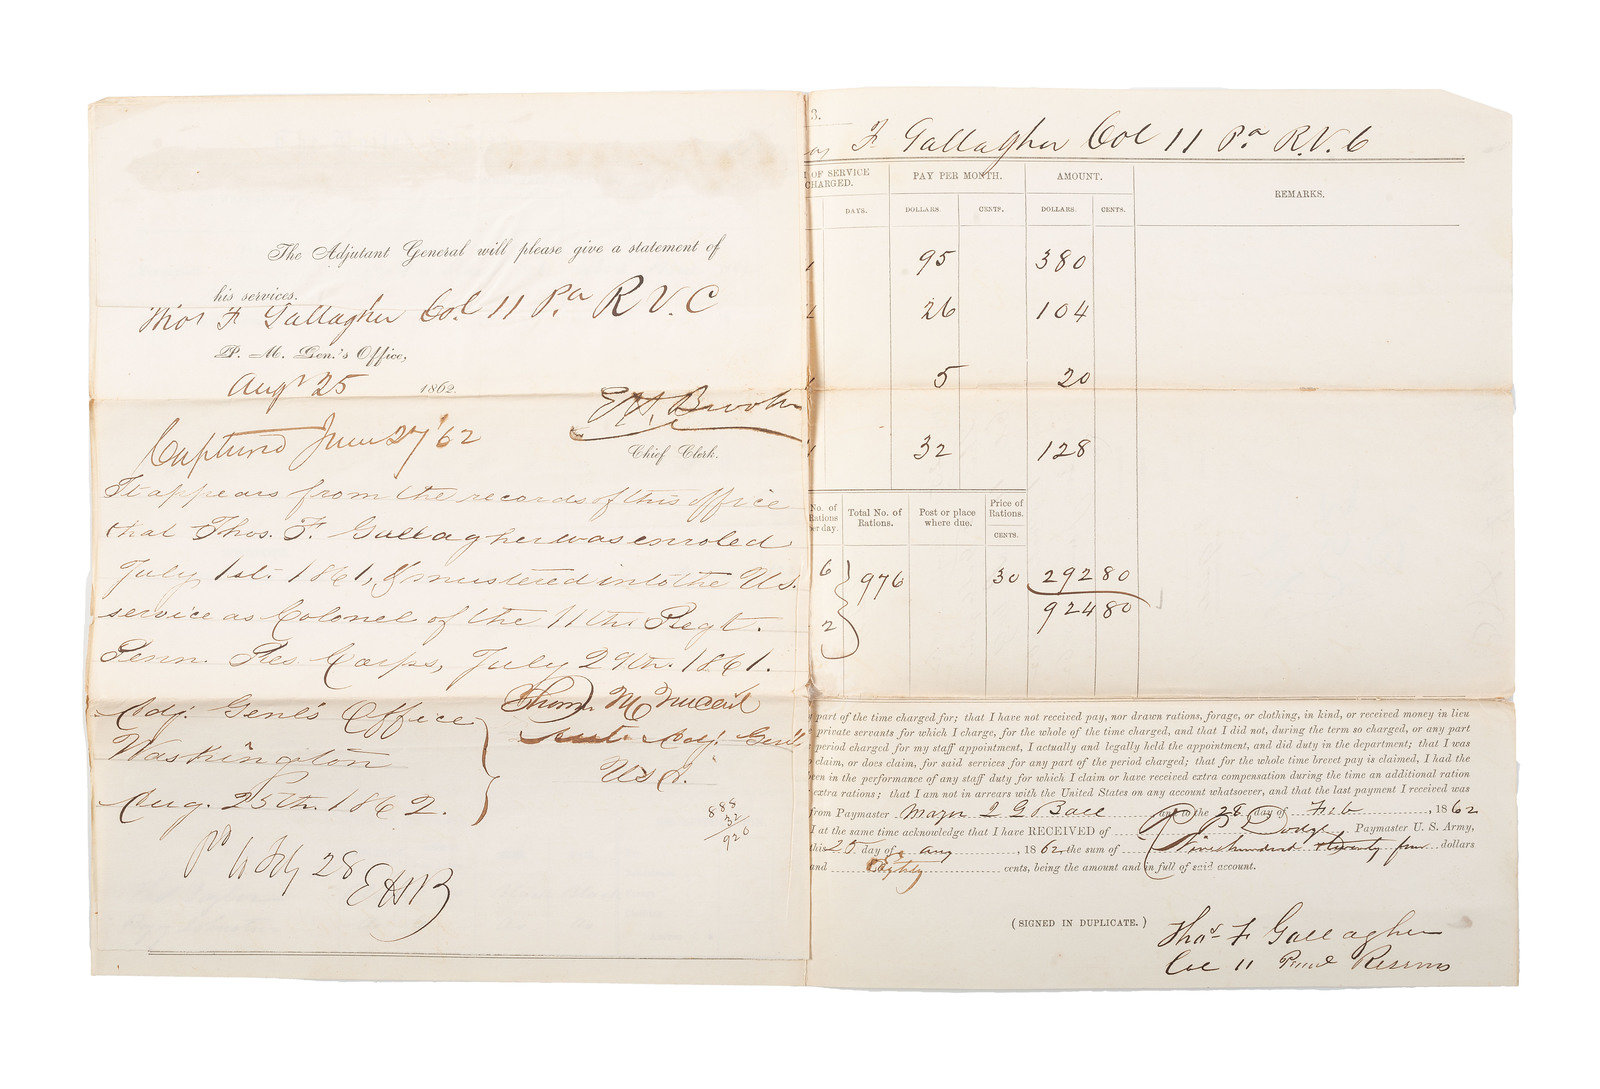 The Adjutant General will please give a statement of
his services.
Thos F Gallagher Col 11 Pa R V. C
P. M. Gen.'s Office,
Augt 25 1862.
E H. Brooke
Chief Clerk.
Captured June 27 '62
It appears from the records of this office
that Thos. F. Gallagher was enroled
July 1st. 1861, & mustered into the U.S.
service as Colonel of the 11th. Regt.
Penn. Res. Corps, July 29th. 1861.
Adj. Genl's Office
Washington
Aug. 25th. 1862.
Asst. Adj. Genl.
888
32
920
28
EHB
3.
F Gallagher Col 11 Pa R.V. C
OF SERVICE
CHARGED. PAY PER MONTH. AMOUNT. REMARKS.
DAYS. DOLLARS. CENTS. DOLLARS. CENTS.
95 380
26 104
5 20
32 128
No. of
Rations
per day. Total No. of
Rations. Post or place
where due. Price of
Rations.
CENTS.
6 976 30 292 80
2 924 80
part of the time charged for; that I have not received pay, nor drawn rations, forage, or clothing, in kind, or received money in lieu
private servants for which I charge, for the whole of the time charged, and that I did not, during the term so charged, or any part
period charged for my staff appointment, I actually and legally held the appointment, and did duty in the department; that I was
claim, or does claim, for said services for any part of the period charged; that for the whole time brevet pay is claimed, I had the
een in the performance of any staff duty for which I claim or have received extra compensation during the time an additional ration
extra rations; that I am not in arrears with the United States on any account whatsoever, and that the last payment I received was
from Paymaster Major and to the 28 day of Feb , 1862
I at the same time acknowledge that I have RECEIVED of Dodge, Paymaster U. S. Army,
this 25 day of Aug , 1862, the sum of Nine hundred twenty four dollars
and Eighty cents, being the amount and in full of said account.
(SIGNED IN DUPLICATE.)
Thos F Gallagher
Col 11 Penna Reserves